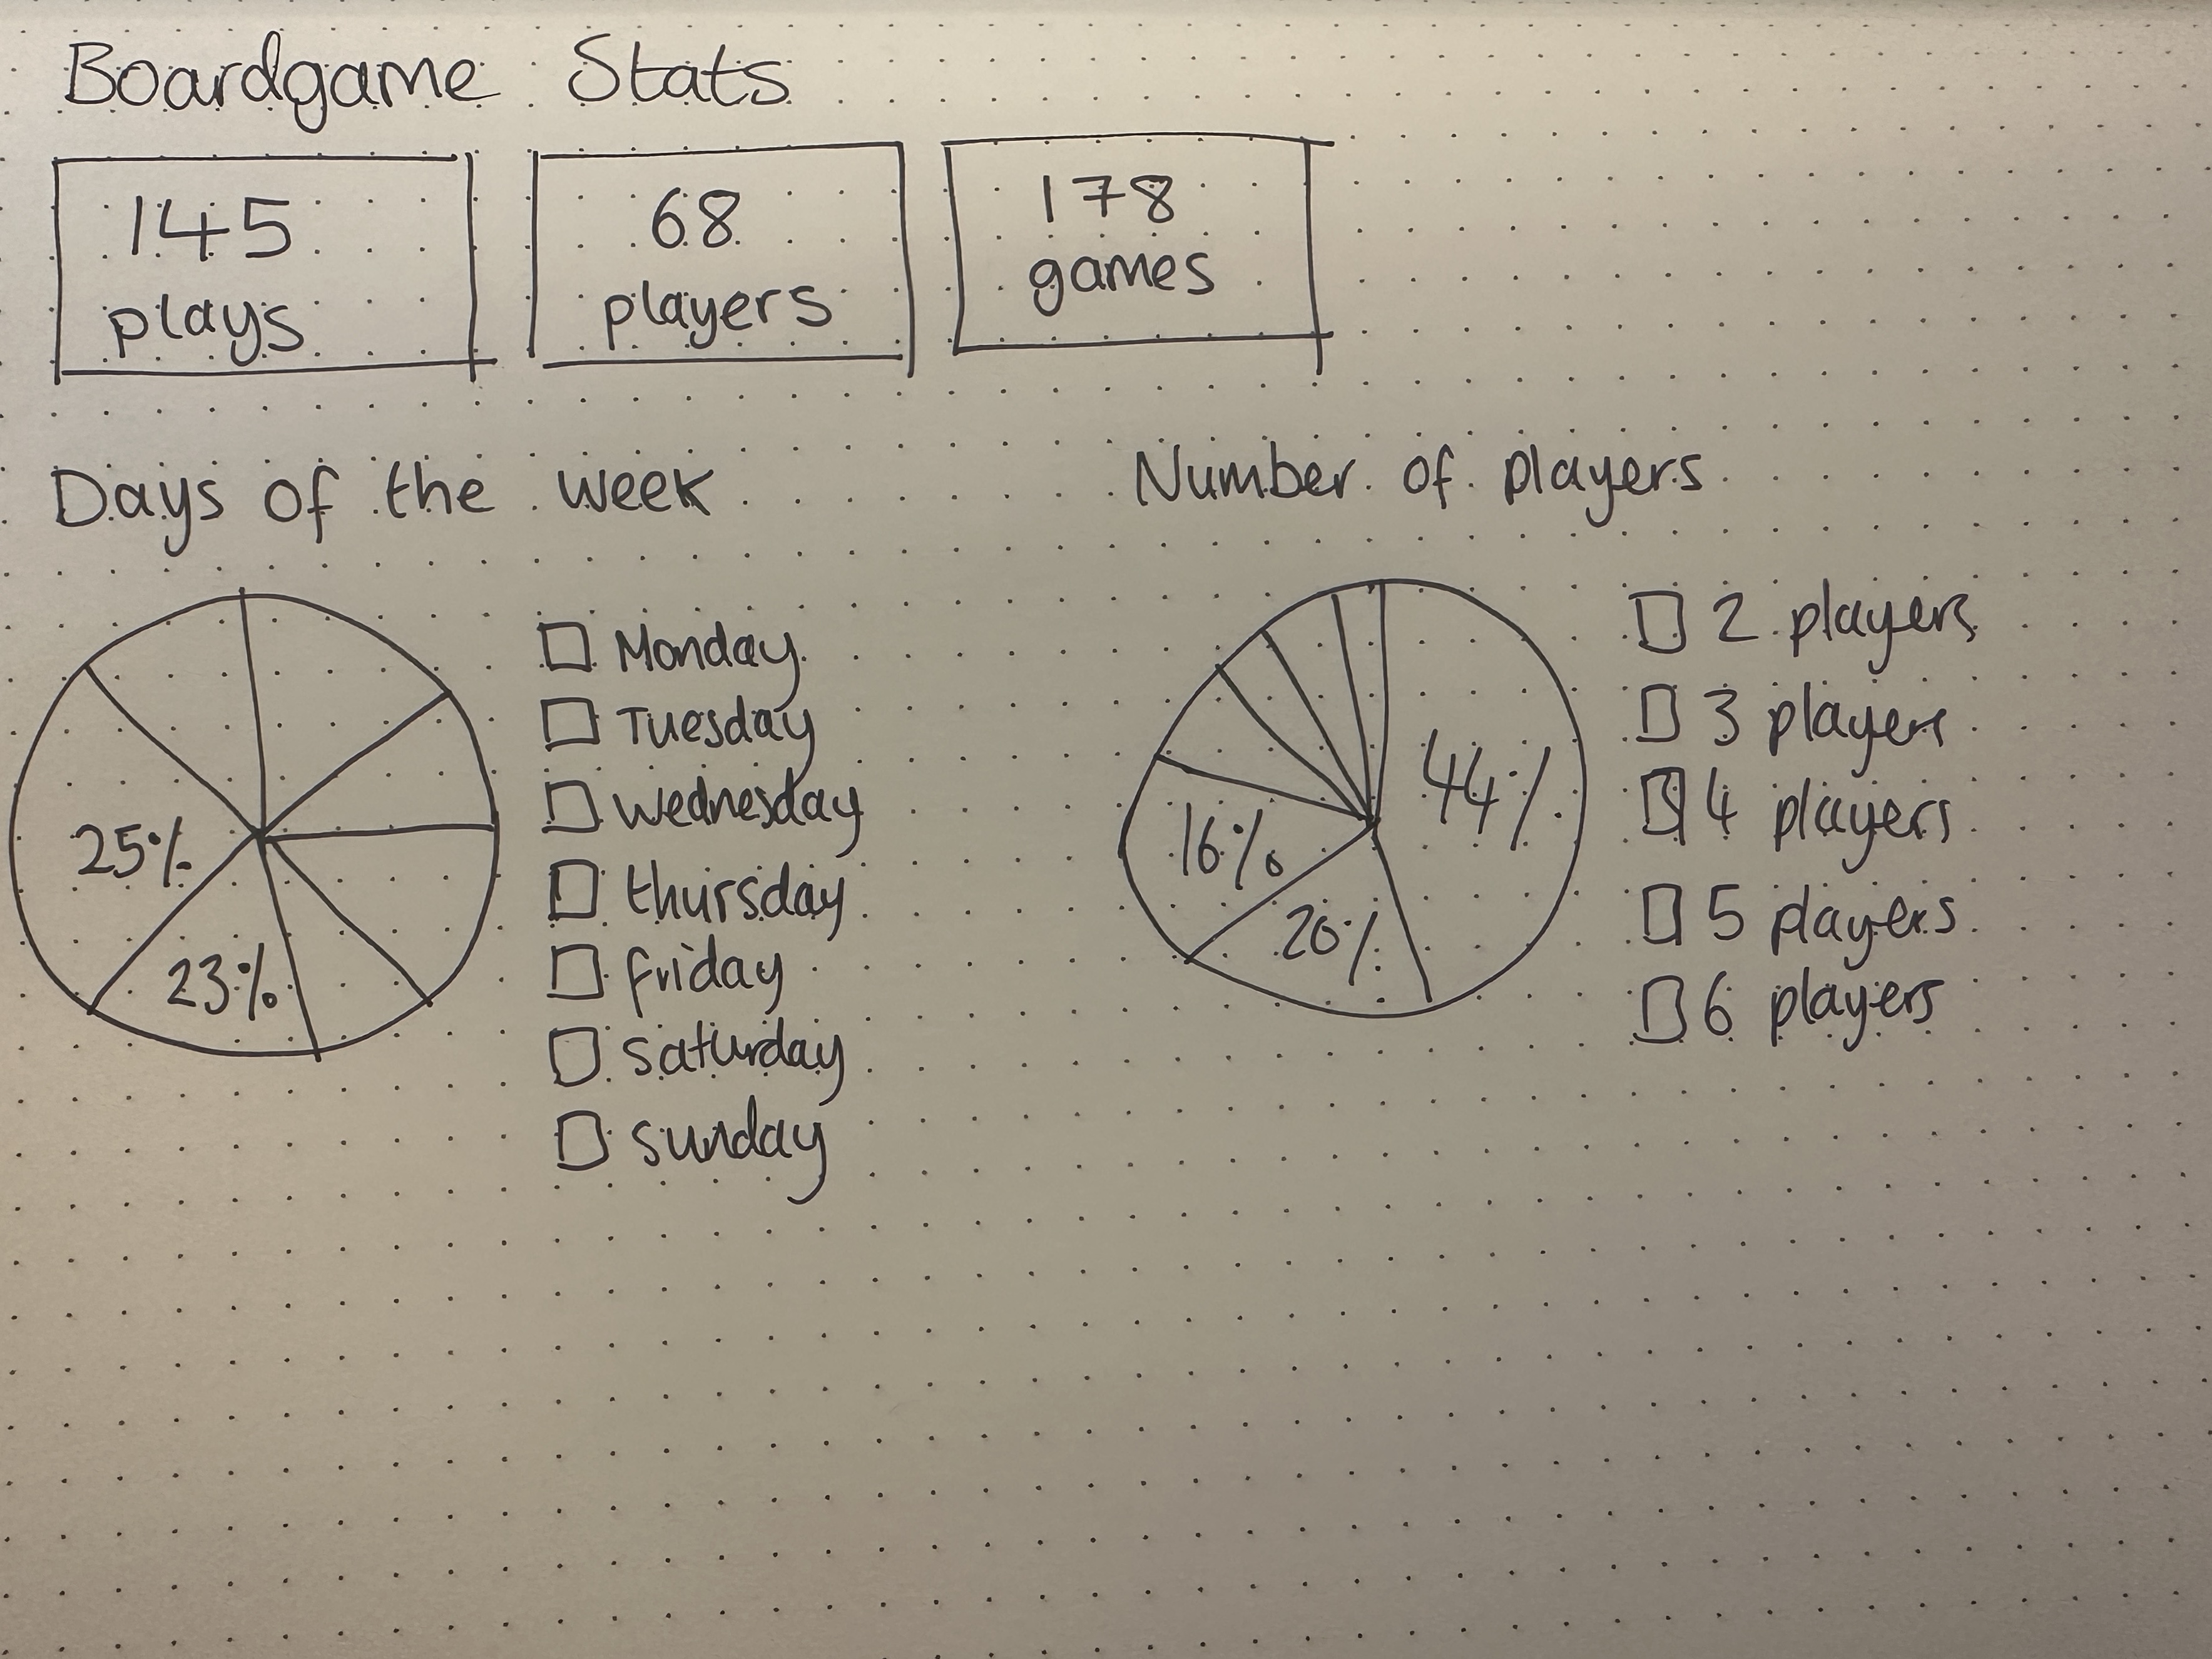 Boardgame Stats
145
plays
68
players
178
games
Days of the week
25%
23%
Monday
Tuesday
Wednesday
thursday
friday
saturday
sunday
Number of players
44%
16%
20%
2 players
3 players
4 players
5 players
6 players